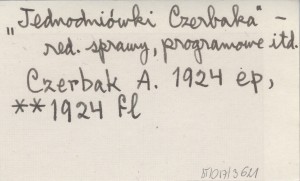 „Jednodniówki Czerbaka" –
red. sprawy, programowe itd.
Czerbak A. 1924 ep,
**1924 fl